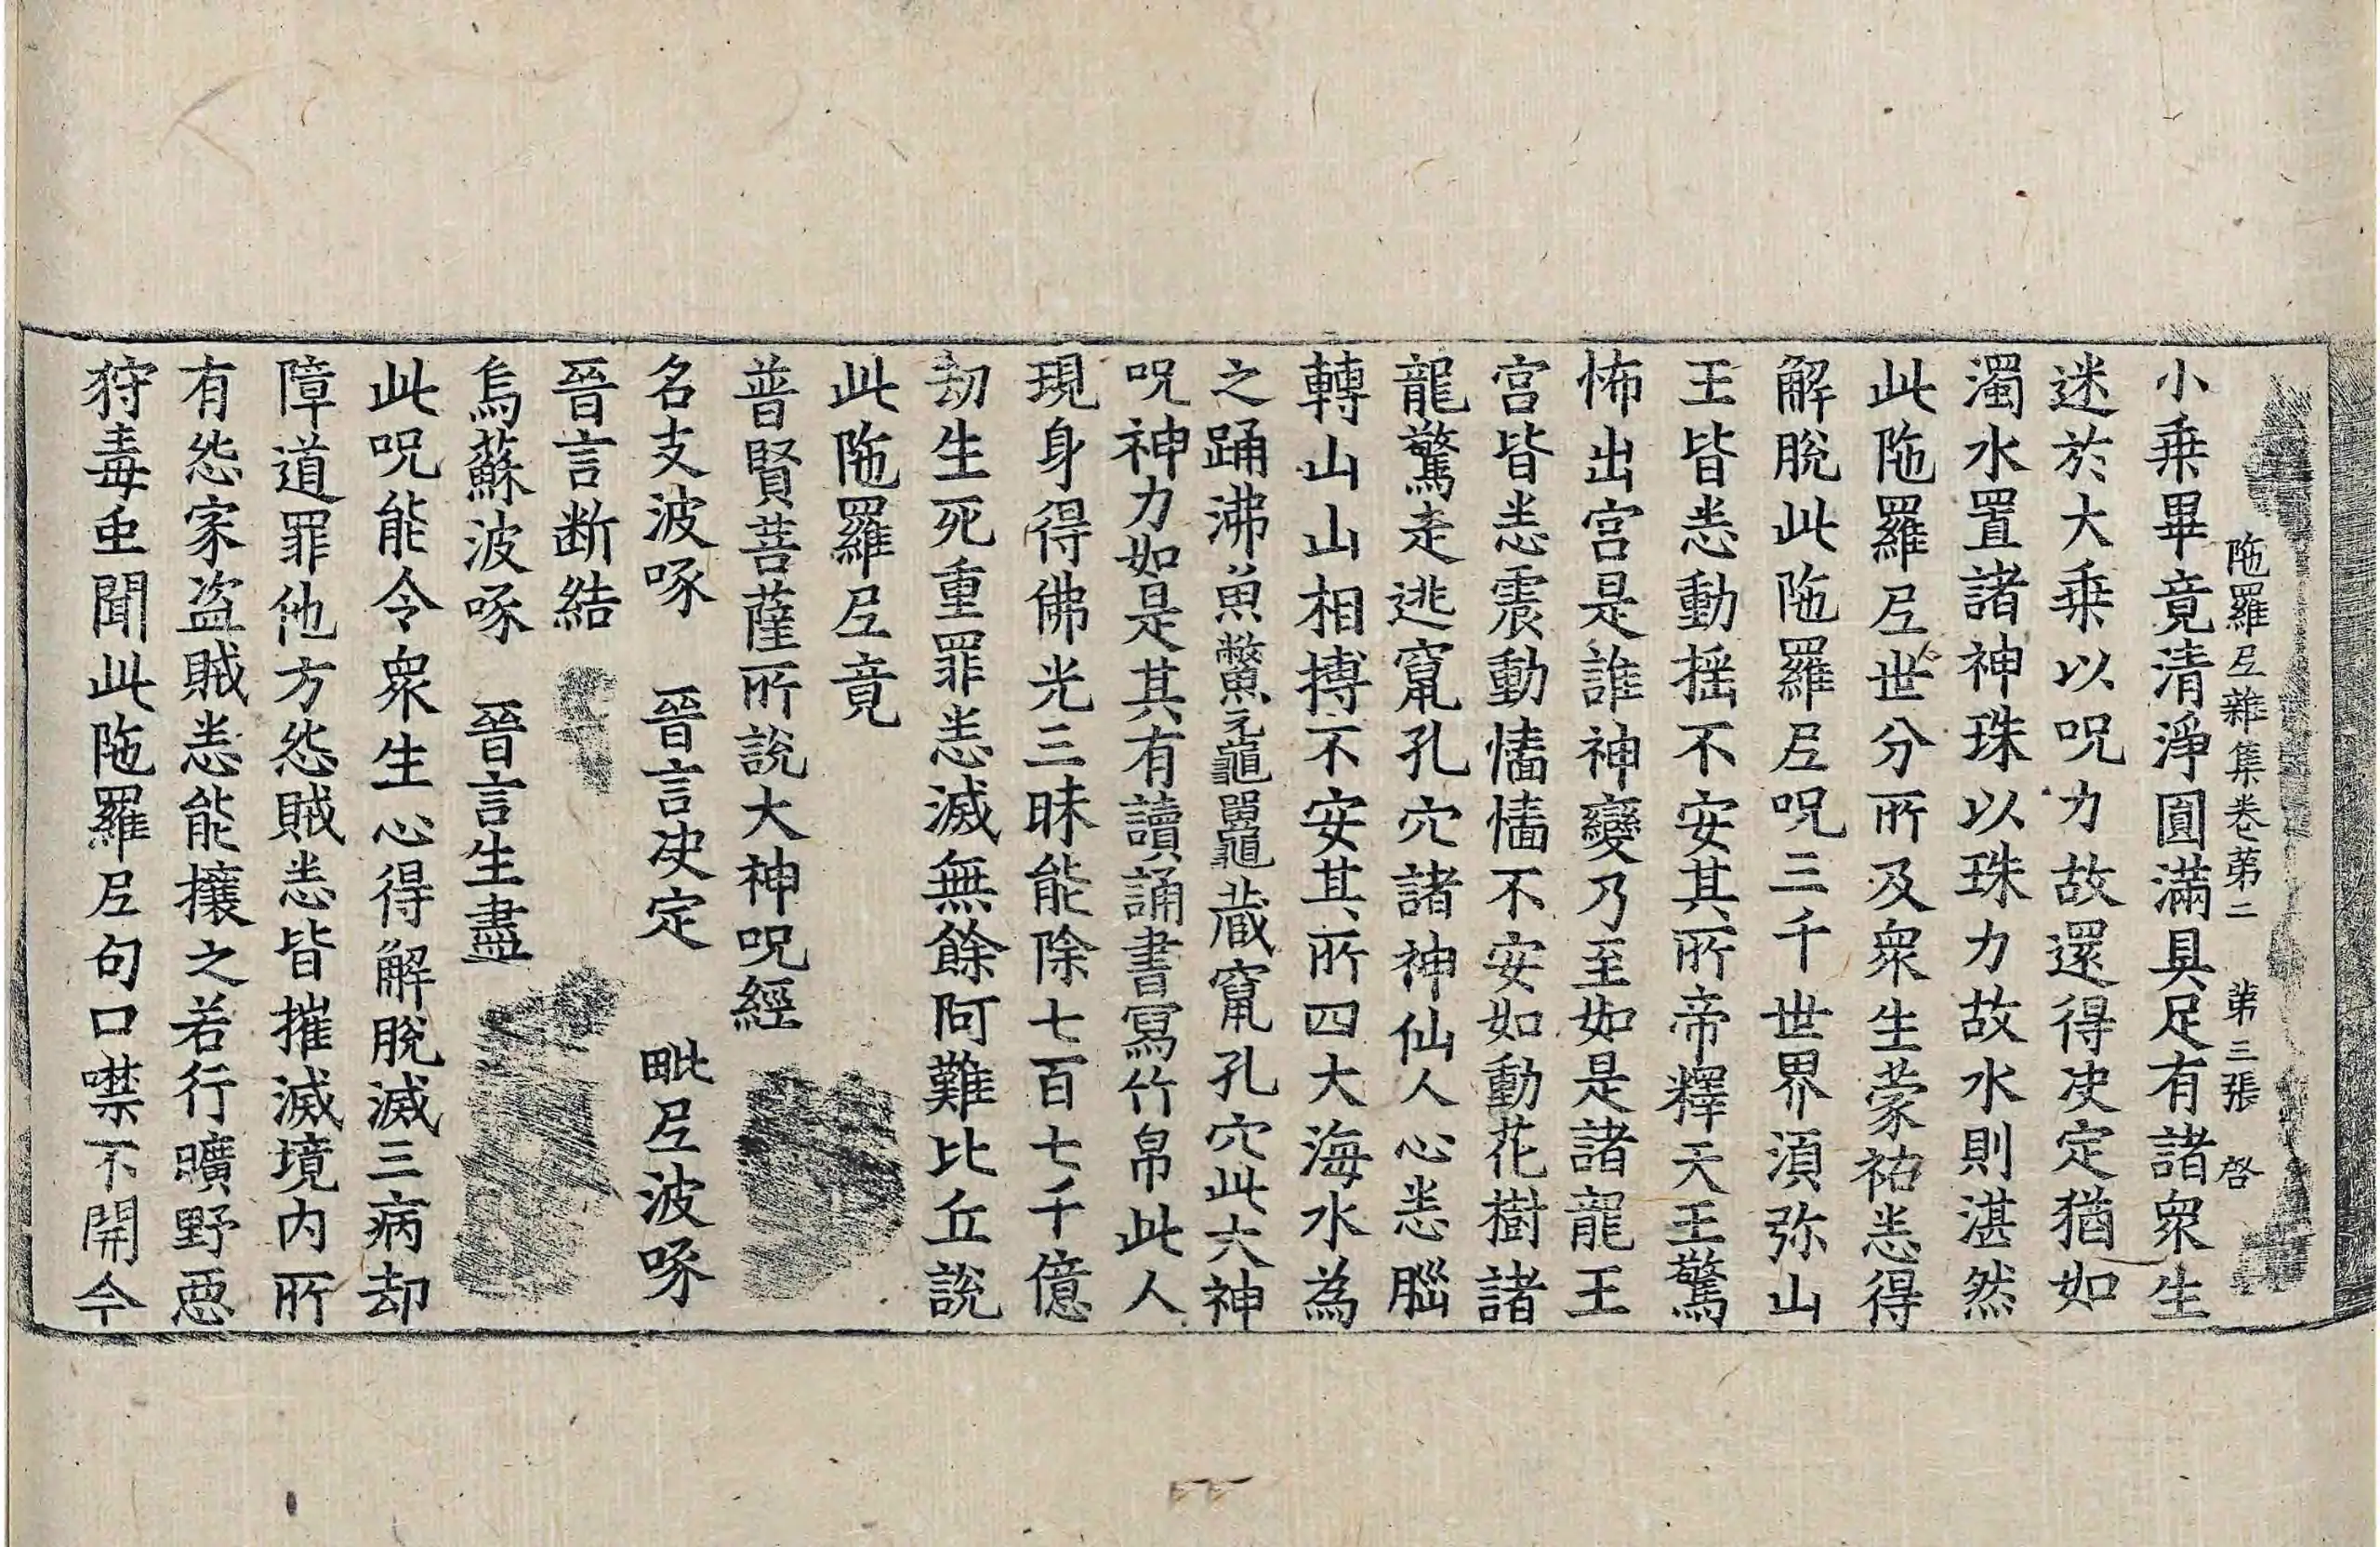 陁羅𡰱雜集卷第二 第三張 啓
小乗畢竟清淨圓滿具足有諸衆生
迷於大乗以呪力故還得決定猶如
濁水置諸神珠以珠力故水則湛然
此陁羅𡰱世分所及衆生蒙祐悉得
解脫此陁羅𡰱呪三千世界湏弥山
王皆悉動揺不安其所帝釋天王驚
怖出宫是誰神變乃至如是諸龍王
宫皆悉震動慉慉不安如動花樹諸
龍驚走逃竄孔穴諸神仙人心悉𦛁
轉山山相搏不安其所四大海水為
之踊沸魚鱉黿鼉藏竄孔穴此大神
呪神力如是其有讀誦書寫竹帛此人
現身得佛光三昧能除七百七千億
劫生死重罪悉滅無餘阿難比丘說
此陁羅𡰱竟
普賢菩薩所說大神呪經
名支波啄 晉言決定 毗𡰱波啄
晉言断結
烏蘇波啄 晉言生盡
此呪能令衆生心得解脫滅三病却
障道罪他方怨賊悉皆摧滅境内所
有怨家盗賊悉能攘之若行曠野惡
狩毒虫聞此陁羅𡰱句口噤不開今